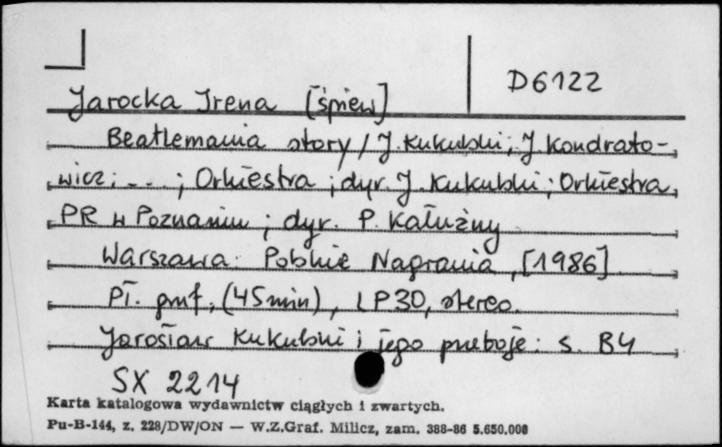 D6122
Jarocka Irena [śpiew]
Beatlemania story / J. Kukulski ; J. Kondrato-
wicz ; ... ; Orkiestra ; dyr. J. Kukulski ; Orkiestra
PR w Poznaniu ; dyr. P. Kałużny
Warszawa : Polskie Nagrania, [1986]
Pł. gmf., (45 min), LP30, stereo.
Jarosław Kukulski i jego przeboje: s. B4
SX 2214
Karta katalogowa wydawnictw ciągłych i zwartych.
Pu-B-144, z. 228/DW/ON — W.Z.Graf. Milicz, zam. 388-86 5.650.000